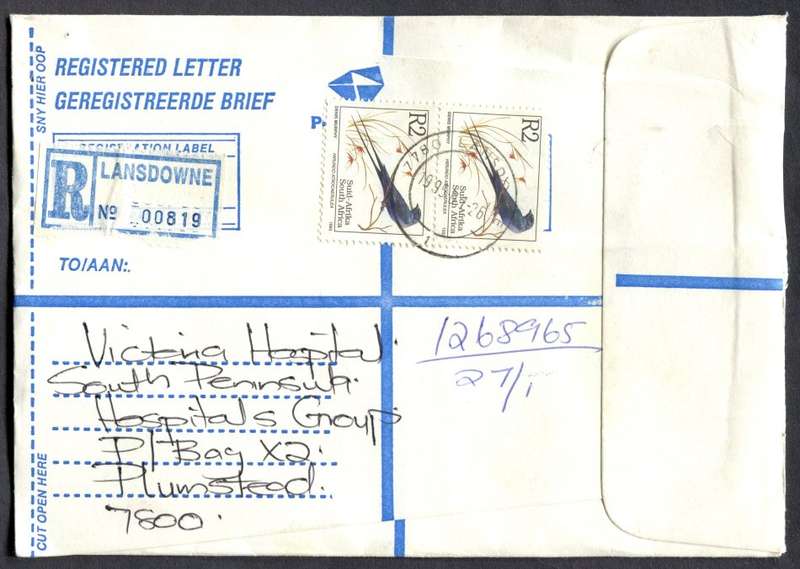 REGISTERED LETTER
GEREGISTREERDE BRIEF
SNY HIER OOP
REGISTRATION LABEL
R
LANSDOWNE
No 00819
R2
Suid-Afrika
South Africa
R2
Suid-Afrika
South Africa
7780
TO/AAN:
Victoria Hospital.
South Peninsula.
Hospitals Group
P/Bag X2.
Plumstead.
7800.
1268965
27/
CUT OPEN HERE